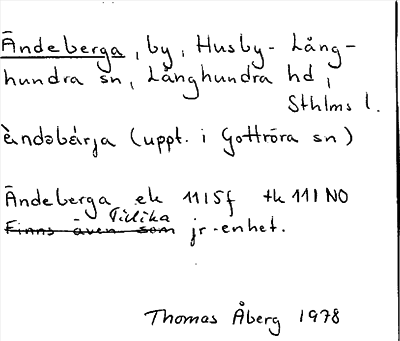 Ändeberga, by, Husby-Lång-
hundra sn, Långhundra hd,
Sthlms l.
ә̀ndәbә́rja (uppt. i Gottröra sn)
Ändeberga ek 11I5f tk 111 NO
Tillika
Finns även som jr-enhet.
Thomas Åberg 1978